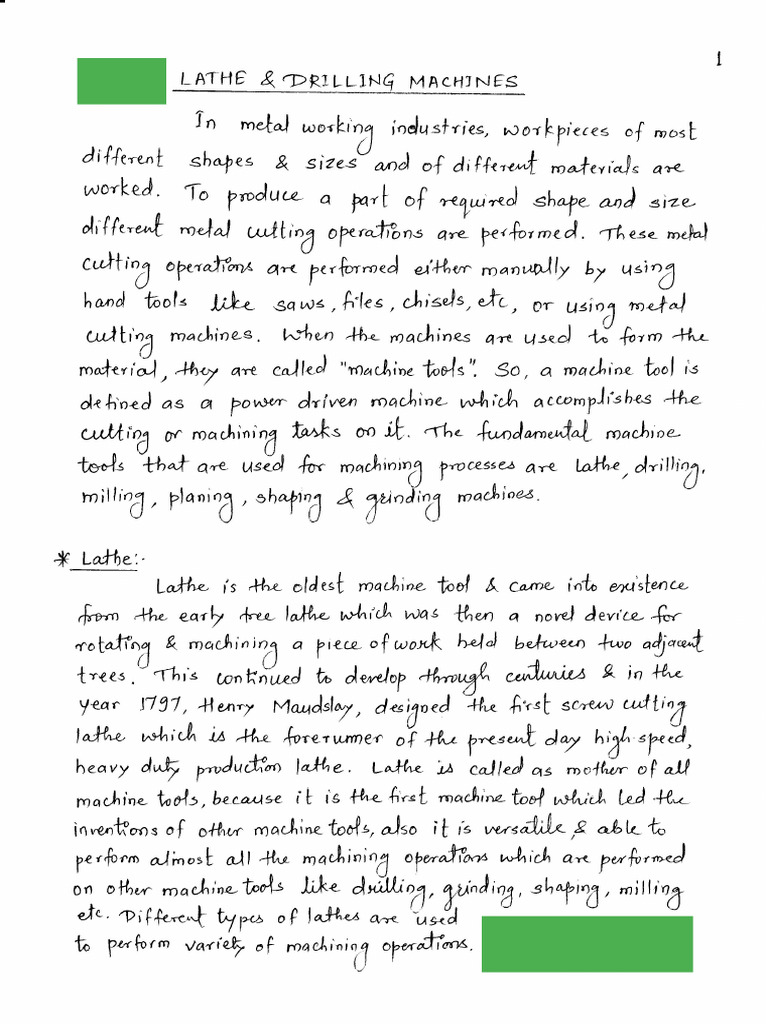 1
LATHE & DRILLING MACHINES
In metal working industries, workpieces of most
different shapes & sizes and of different materials are
worked. To produce a part of required shape and size
different metal cutting operations are performed. These metal
cutting operations are performed either manually by using
hand tools like saws, files, chisels, etc, or using metal
cutting machines. When the machines are used to form the
material, they are called "machine tools". So, a machine tool is
defined as a power driven machine which accomplishes the
cutting or machining tasks on it. The fundamental machine
tools that are used for machining processes are lathe, drilling,
milling, planing, shaping & grinding machines.
* Lathe:-
Lathe is the oldest machine tool & came into existence
from the early tree lathe which was then a novel device for
rotating & machining a piece of work held between two adjacent
trees. This continued to develop through centuries & in the
year 1797, Henry Maudslay, designed the first screw cutting
lathe which is the forerunner of the present day high-speed,
heavy duty production lathe. Lathe is called as mother of all
machine tools, because it is the first machine tool which led the
inventions of other machine tools, also it is versatile & able to
perform almost all the machining operations which are performed
on other machine tools like drilling, grinding, shaping, milling
etc. Different types of lathes are used
to perform variety of machining operations.